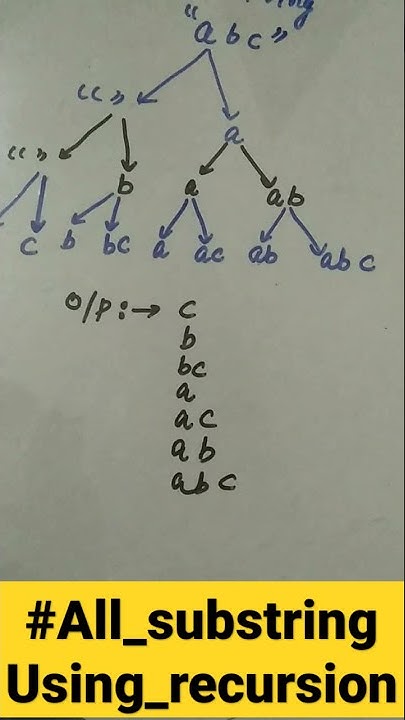 "abc"
"" a
"" b a ab
c b bc a ac ab abc
O/P:→ c
b
bc
a
ac
ab
abc
#All_substring
Using_recursion